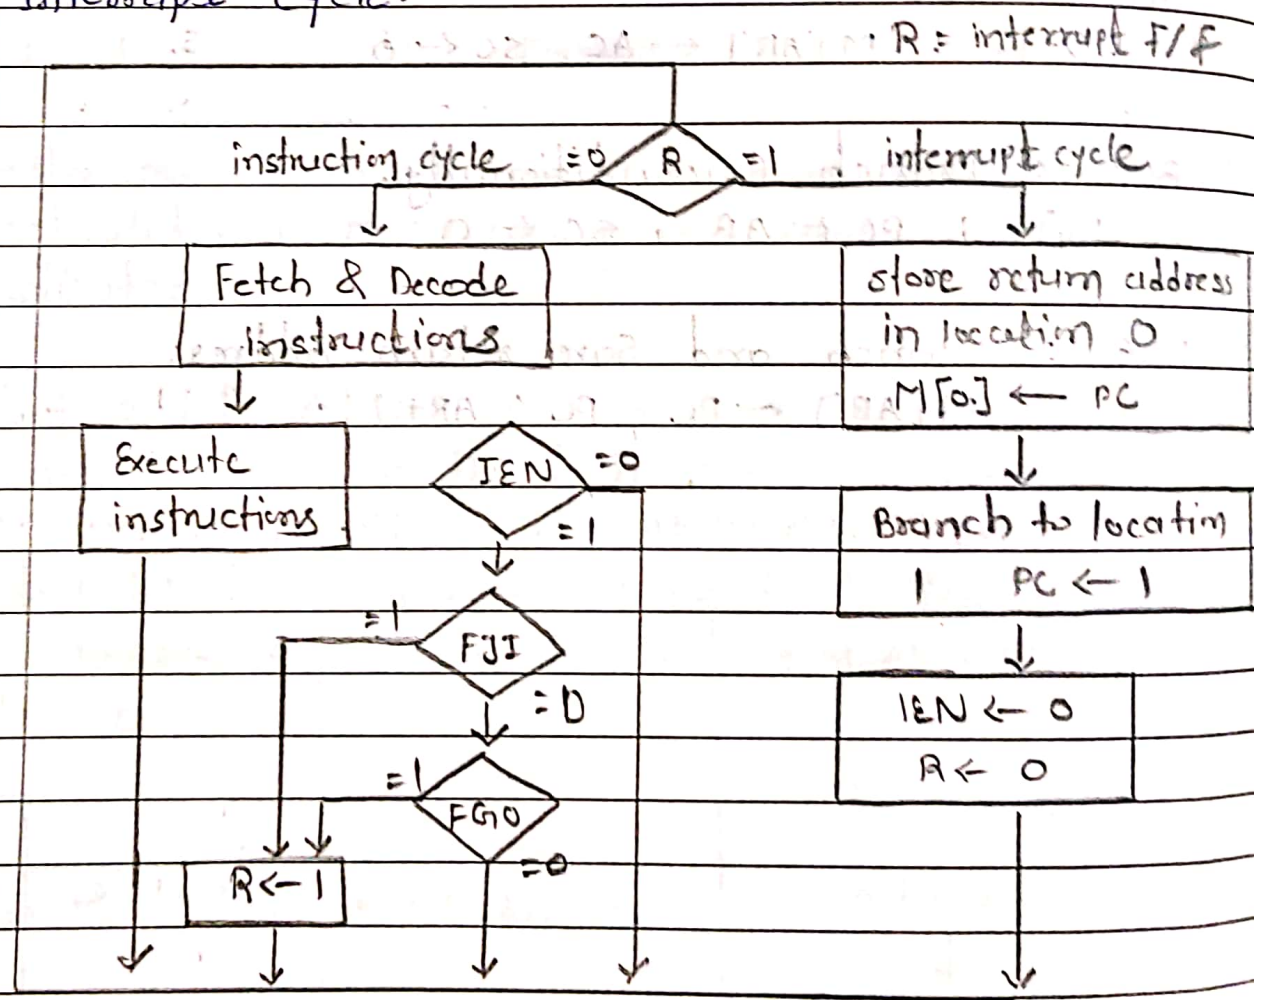 Interrupt cycle.
R = interrupt F/F
instruction cycle =0 R =1 interrupt cycle
Fetch & Decode
instructions
store return address
in loccation 0
M[0.] ← PC
Execute
instructions
IEN =0
=1
Branch to location
1 PC ← 1
=1
FJI
=0
IEN ← 0
R ← 0
=1
FGO
=0
R ← 1